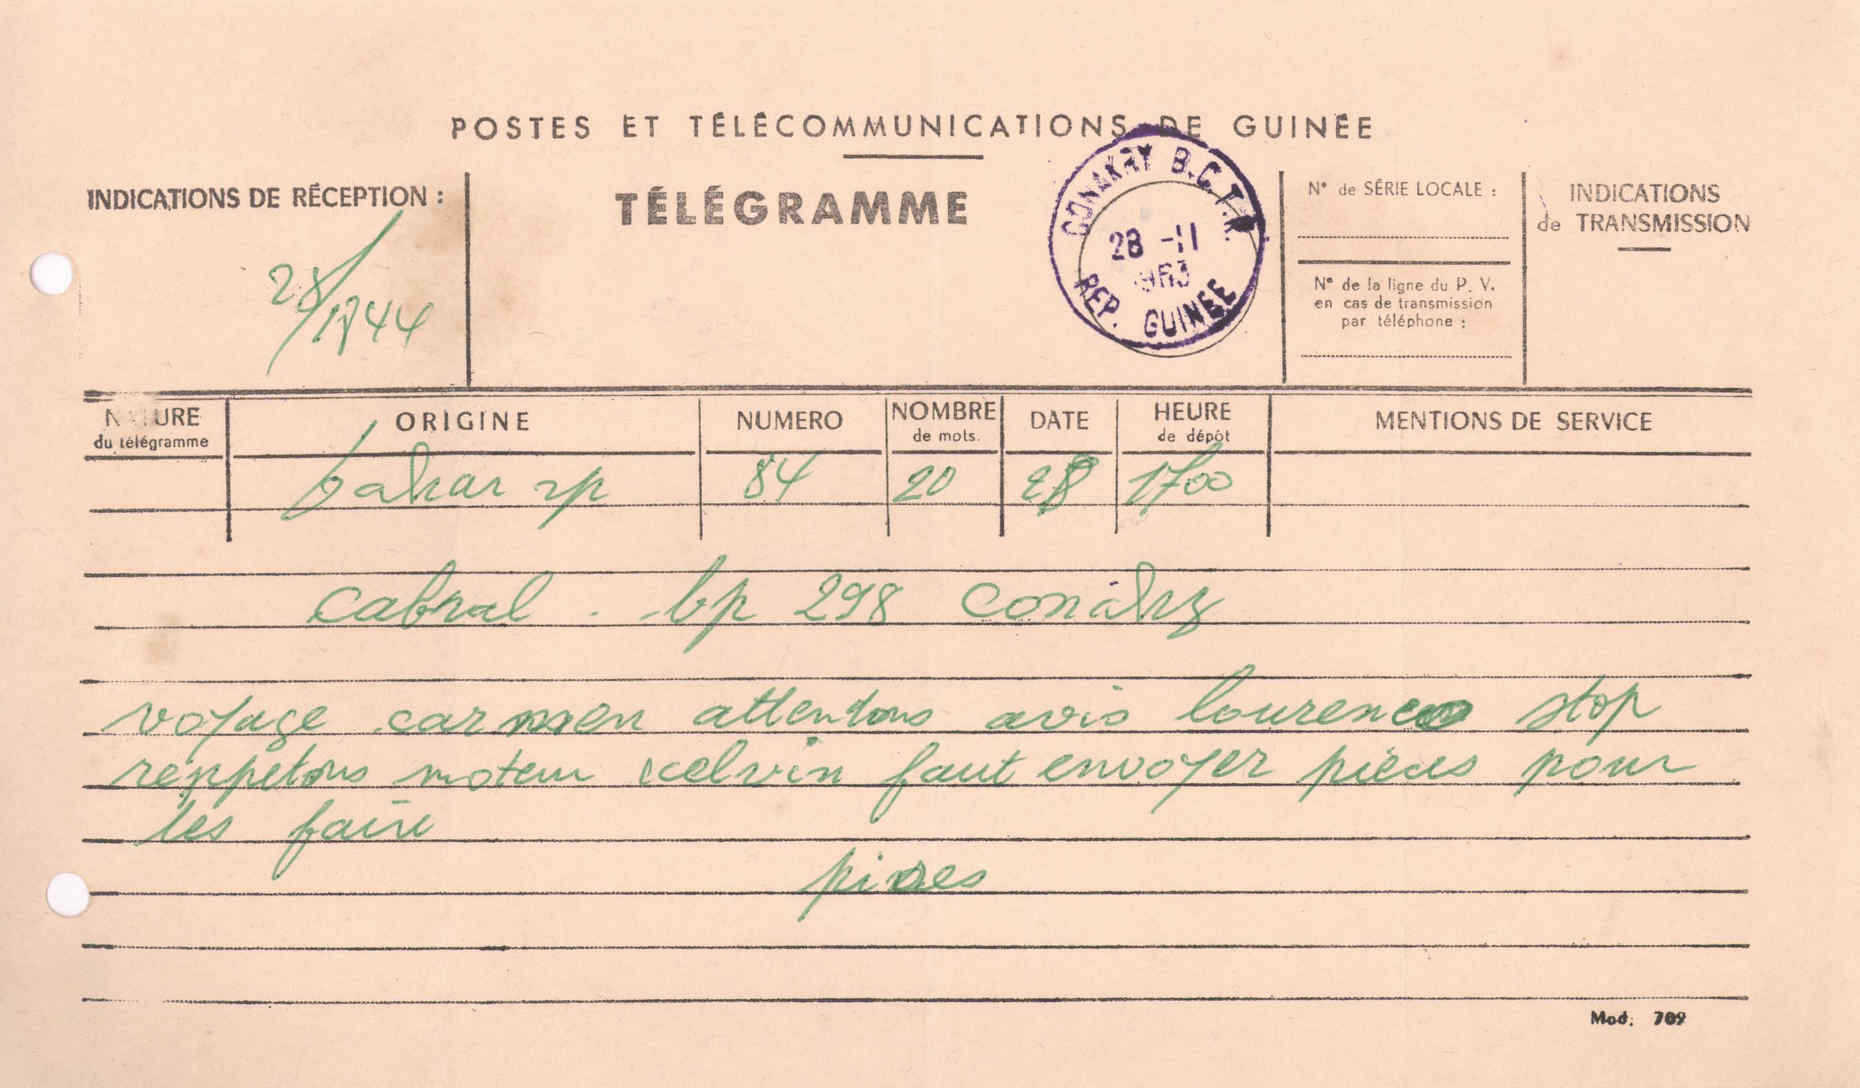 POSTES ET TÉLÉCOMMUNICATIONS DE GUINÉE
INDICATIONS DE RÉCEPTION :
TÉLÉGRAMME
CONAKRY B.C.T.R.
28 -11
1963
REP. GUINÉE
N° de SÉRIE LOCALE :
INDICATIONS
de TRANSMISSION
N° de la ligne du P. V.
en cas de transmission
par téléphone :
28/1744
NATURE
du télégramme
ORIGINE
NUMERO
NOMBRE
de mots.
DATE
HEURE
de dépôt
MENTIONS DE SERVICE
dakar rp 84 20 28 1700
cabral - bp 298 conakry
voyage carmen attendons avis lourenco stop
reppetons moteur kelvin faut envoyer pièces pour
les faire
pires
Mod. 709